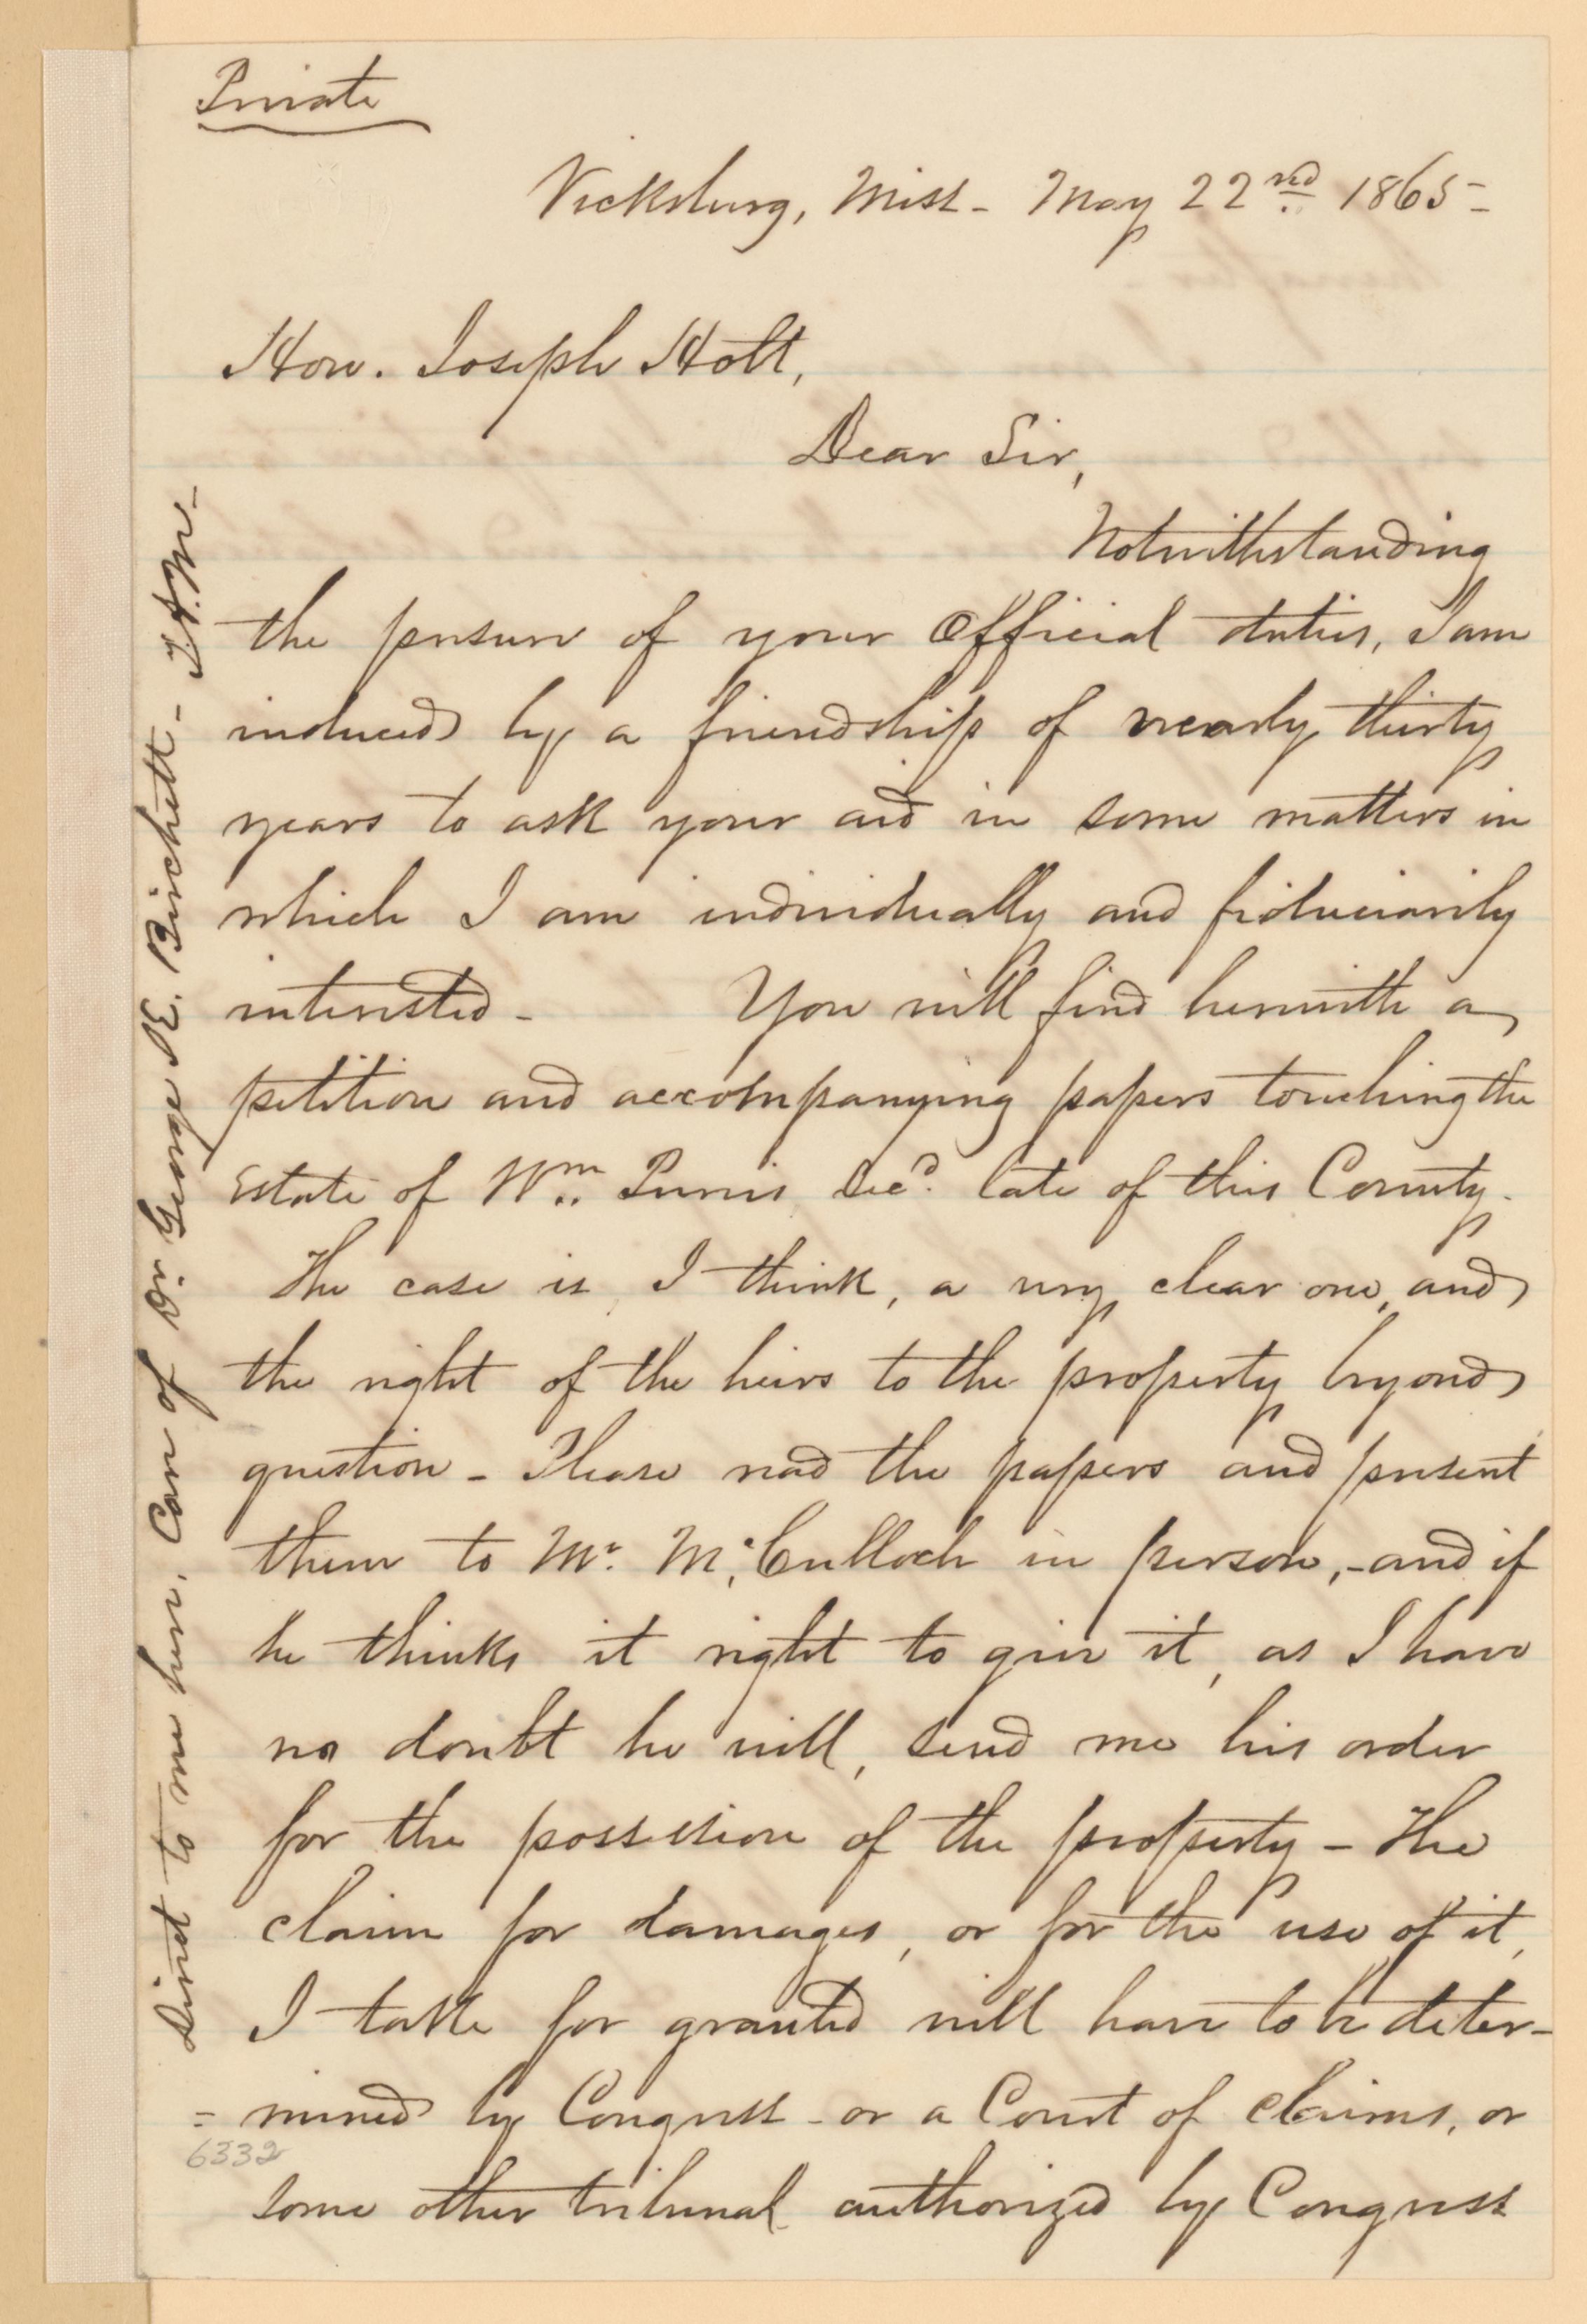 Private
Vicksburg, Miss - May 22nd 1865 -
Hon. Joseph Holt,
Dear Sir,
Notwithstanding
the pressure of your Official duties, I am
induced by a friendship of nearly thirty
years to ask your aid in some matters in
which I am individually and fiduciarily
interested - You will find herewith a
petition and accompanying papers touching the
Estate of Wm. Purvis Decd. late of this County.
The case is, I think, a very clear one, and
the right of the heirs to the property beyond
question - Please read the papers and present
them to Mr. McCulloch in person, - and if
he thinks it right to give it, as I have
no doubt he will, send me his order
for the possession of the property - The
claim for damages, or for the use of it,
I take for granted will have to be deter-
= mined by Congress - or a Court of claims, or
some other tribunal authorized by Congress
Direct to me here, Care of Dr. George K. Birchett -
6332